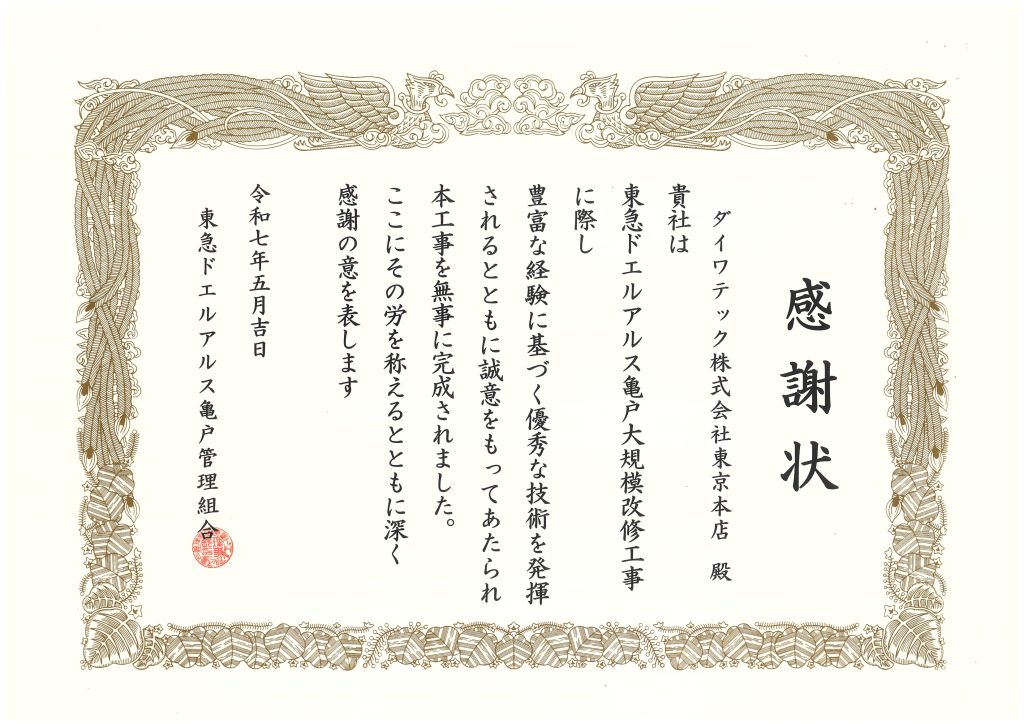 感謝状
ダイワテック株式会社東京本店 殿
貴社は
東急ドエルアルス亀戸大規模改修工事
に際し
豊富な経験に基づく優秀な技術を発揮
されるとともに誠意をもってあたられ
本工事を無事に完成されました。
ここにその労を称えるとともに深く
感謝の意を表します
令和七年五月吉日
東急ドエルアルス亀戸管理組合